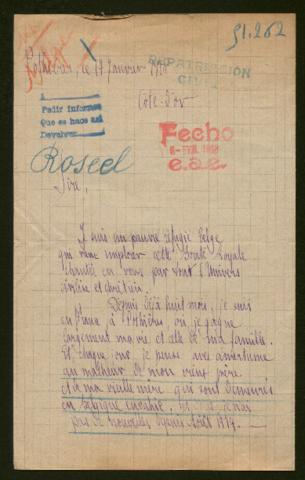 51.262
Pothières, le 17 Janvier 1918
REPATRIACION
Côte-d'or
Pedir informes
Que se hace asi
Devolver
Fecho
6-FEB. 1918
e.a.e.
Roseel
Sire,
Je suis un pauvre réfugié belge
qui vient implorer cette Bonté Royale
chantée en vous par tout l'Univers
chrétien.
Depuis déjà huit mois, je suis
en France à Pothières où je gagne
largement ma vie et celle de ma famille.
Et chaque jour, je pense avec amertume
au malheur de mon vieux père
et à ma vieille mère qui sont demeurés
en Belgique envahie, et dont je n'ai
pas de nouvelles depuis Août 1917.